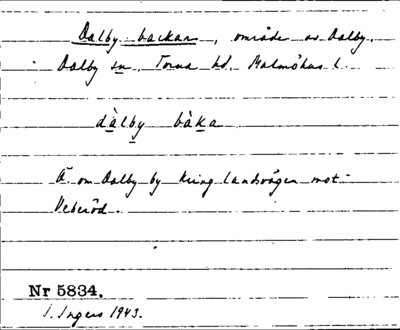 Dalby backar, område av Dalby,
Dalby sn, Torna hd. Malmöhus l.
dàlby bàka
Ä. om Dalby by kring landsvägen mot
Veberöd.
Nr 5834.
I. Ingers 1943.